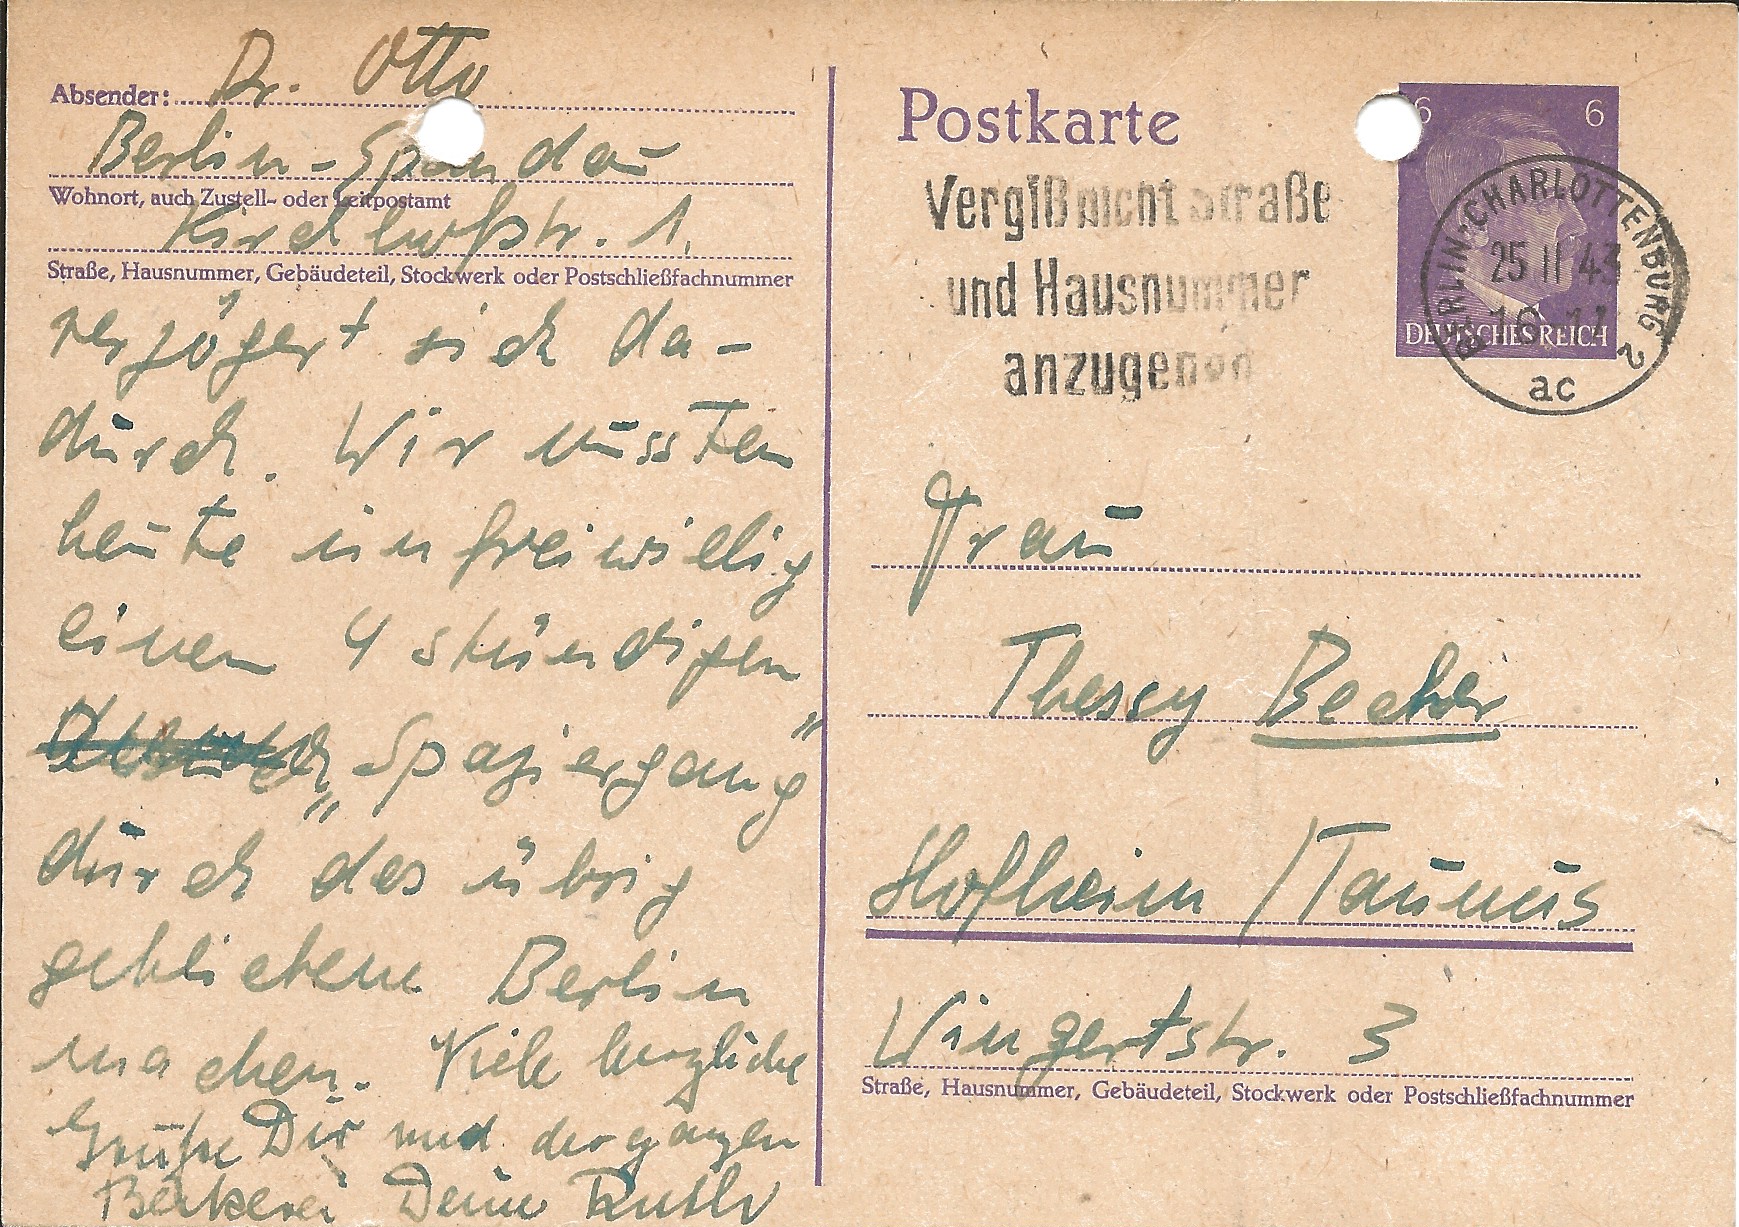 Absender: Dr. Otto
Berlin-Spandau
Wohnort, auch Zustell- oder Leitpostamt
Kirchhofstr. 1.
Straße, Hausnummer, Gebäudeteil, Stockwerk oder Postschließfachnummer
verzögert sich da-
durch. Wir mussten
heute unfreiwillig
einen 4 stündigen
„Spaziergang“
durch das übrig
gebliebene Berlin
machen. Viele herzliche
Grüße Dir und der ganzen
Beckerei Deine Ruth
Postkarte
6 6
DEUTSCHES REICH
Vergiß nicht Straße
und Hausnummer
anzugeben
BERLIN-CHARLOTTENBURG 2
25 11 43
ac
Frau
Thessy Becker
Hofheim / Taunus
Wingertstr. 3
Straße, Hausnummer, Gebäudeteil, Stockwerk oder Postschließfachnummer